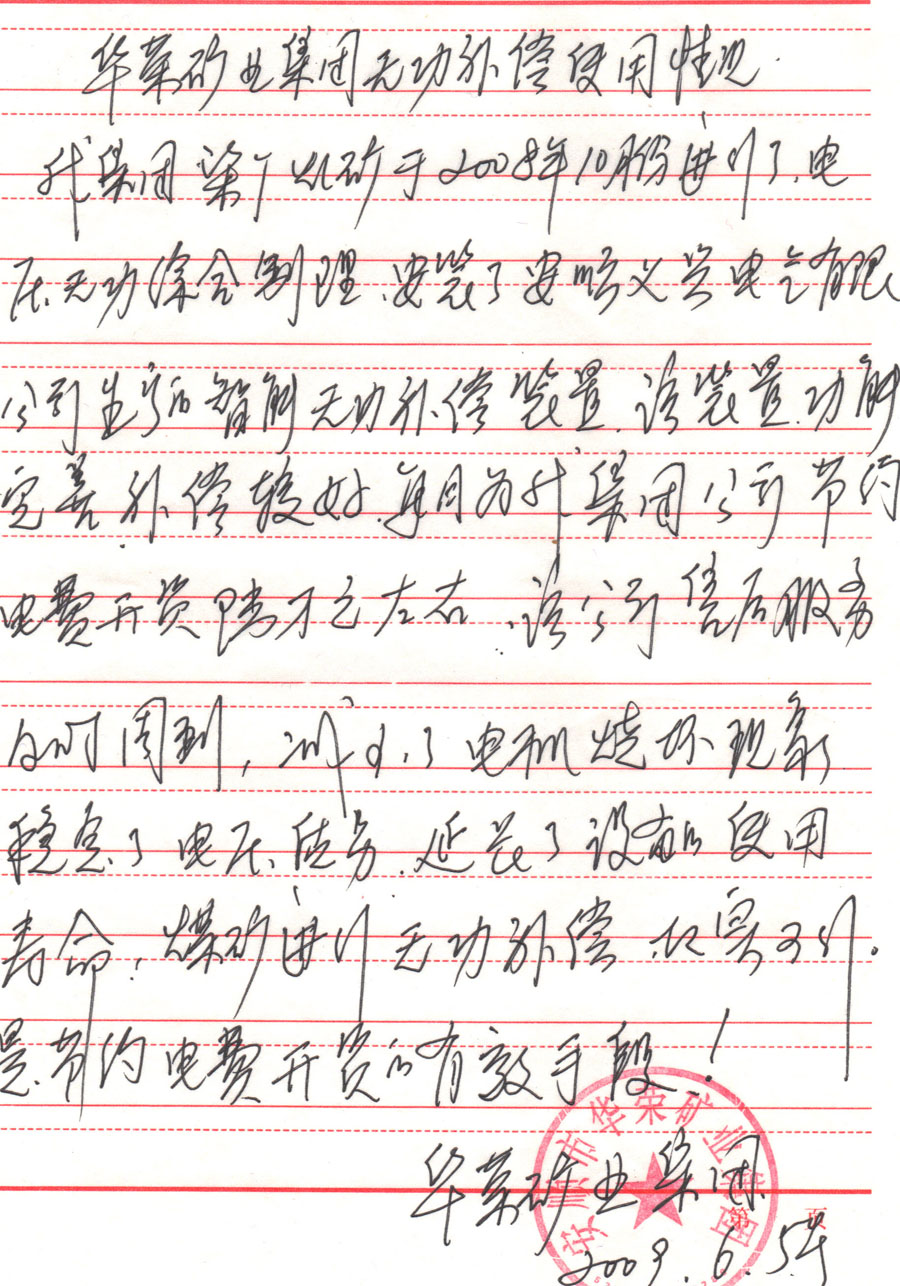 华荣矿业集团无功补偿使用情况
我集团梁广以矿于2008年10月份进行了电
压无功综合制理、安装了安顺义兴电气有限
公司生产的智能无功补偿装置、该装置功能
完善补偿较好、每月为我集团公司节约
电费开资陆万元左右、该公司售后服务
及时周到，减少了电机烧坏现象
稳定了电压、使劳、延长了设备的使用
寿命！煤矿进行无功补偿、切实可行。
是节约电费开资的有效手段！
安顺市华荣矿业集团
华荣矿业集团
第 页
2009.6.5号